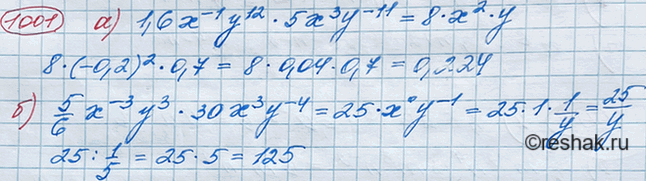 1001 а) 1,6x⁻¹y¹² · 5x³y⁻¹¹ = 8 · x² · y
8 · (-0,2)² · 0,7 = 8 · 0,04 · 0,7 = 0,224
б) 5/6 x⁻³y³ · 30x³y⁻⁴ = 25 · x⁰y⁻¹ = 25 · 1 · 1/y = 25/y
25 : 1/5 = 25 · 5 = 125
reshak.ru